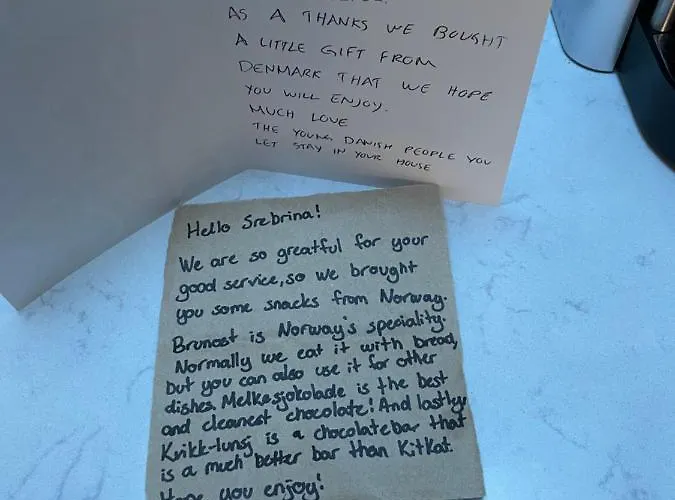 AS A THANKS WE BOUGHT
A LITTLE GIFT FROM
DENMARK THAT WE HOPE
YOU WILL ENJOY.
MUCH LOVE
THE YOUNG DANISH PEOPLE YOU
LET STAY IN YOUR HOUSE
Hello Srebrina!
We are so greatful for your
good service, so we brought
you some snacks from Norway.
Brunost is Norway's speciality.
Normally we eat it with bread,
but you can also use it for other
dishes. Melkesjokolade is the best
and cleanest chocolate! And lastly
Kvikk-lunsj is a chocolatebar that
is a much better bar than KitKat.
Hope you enjoy!